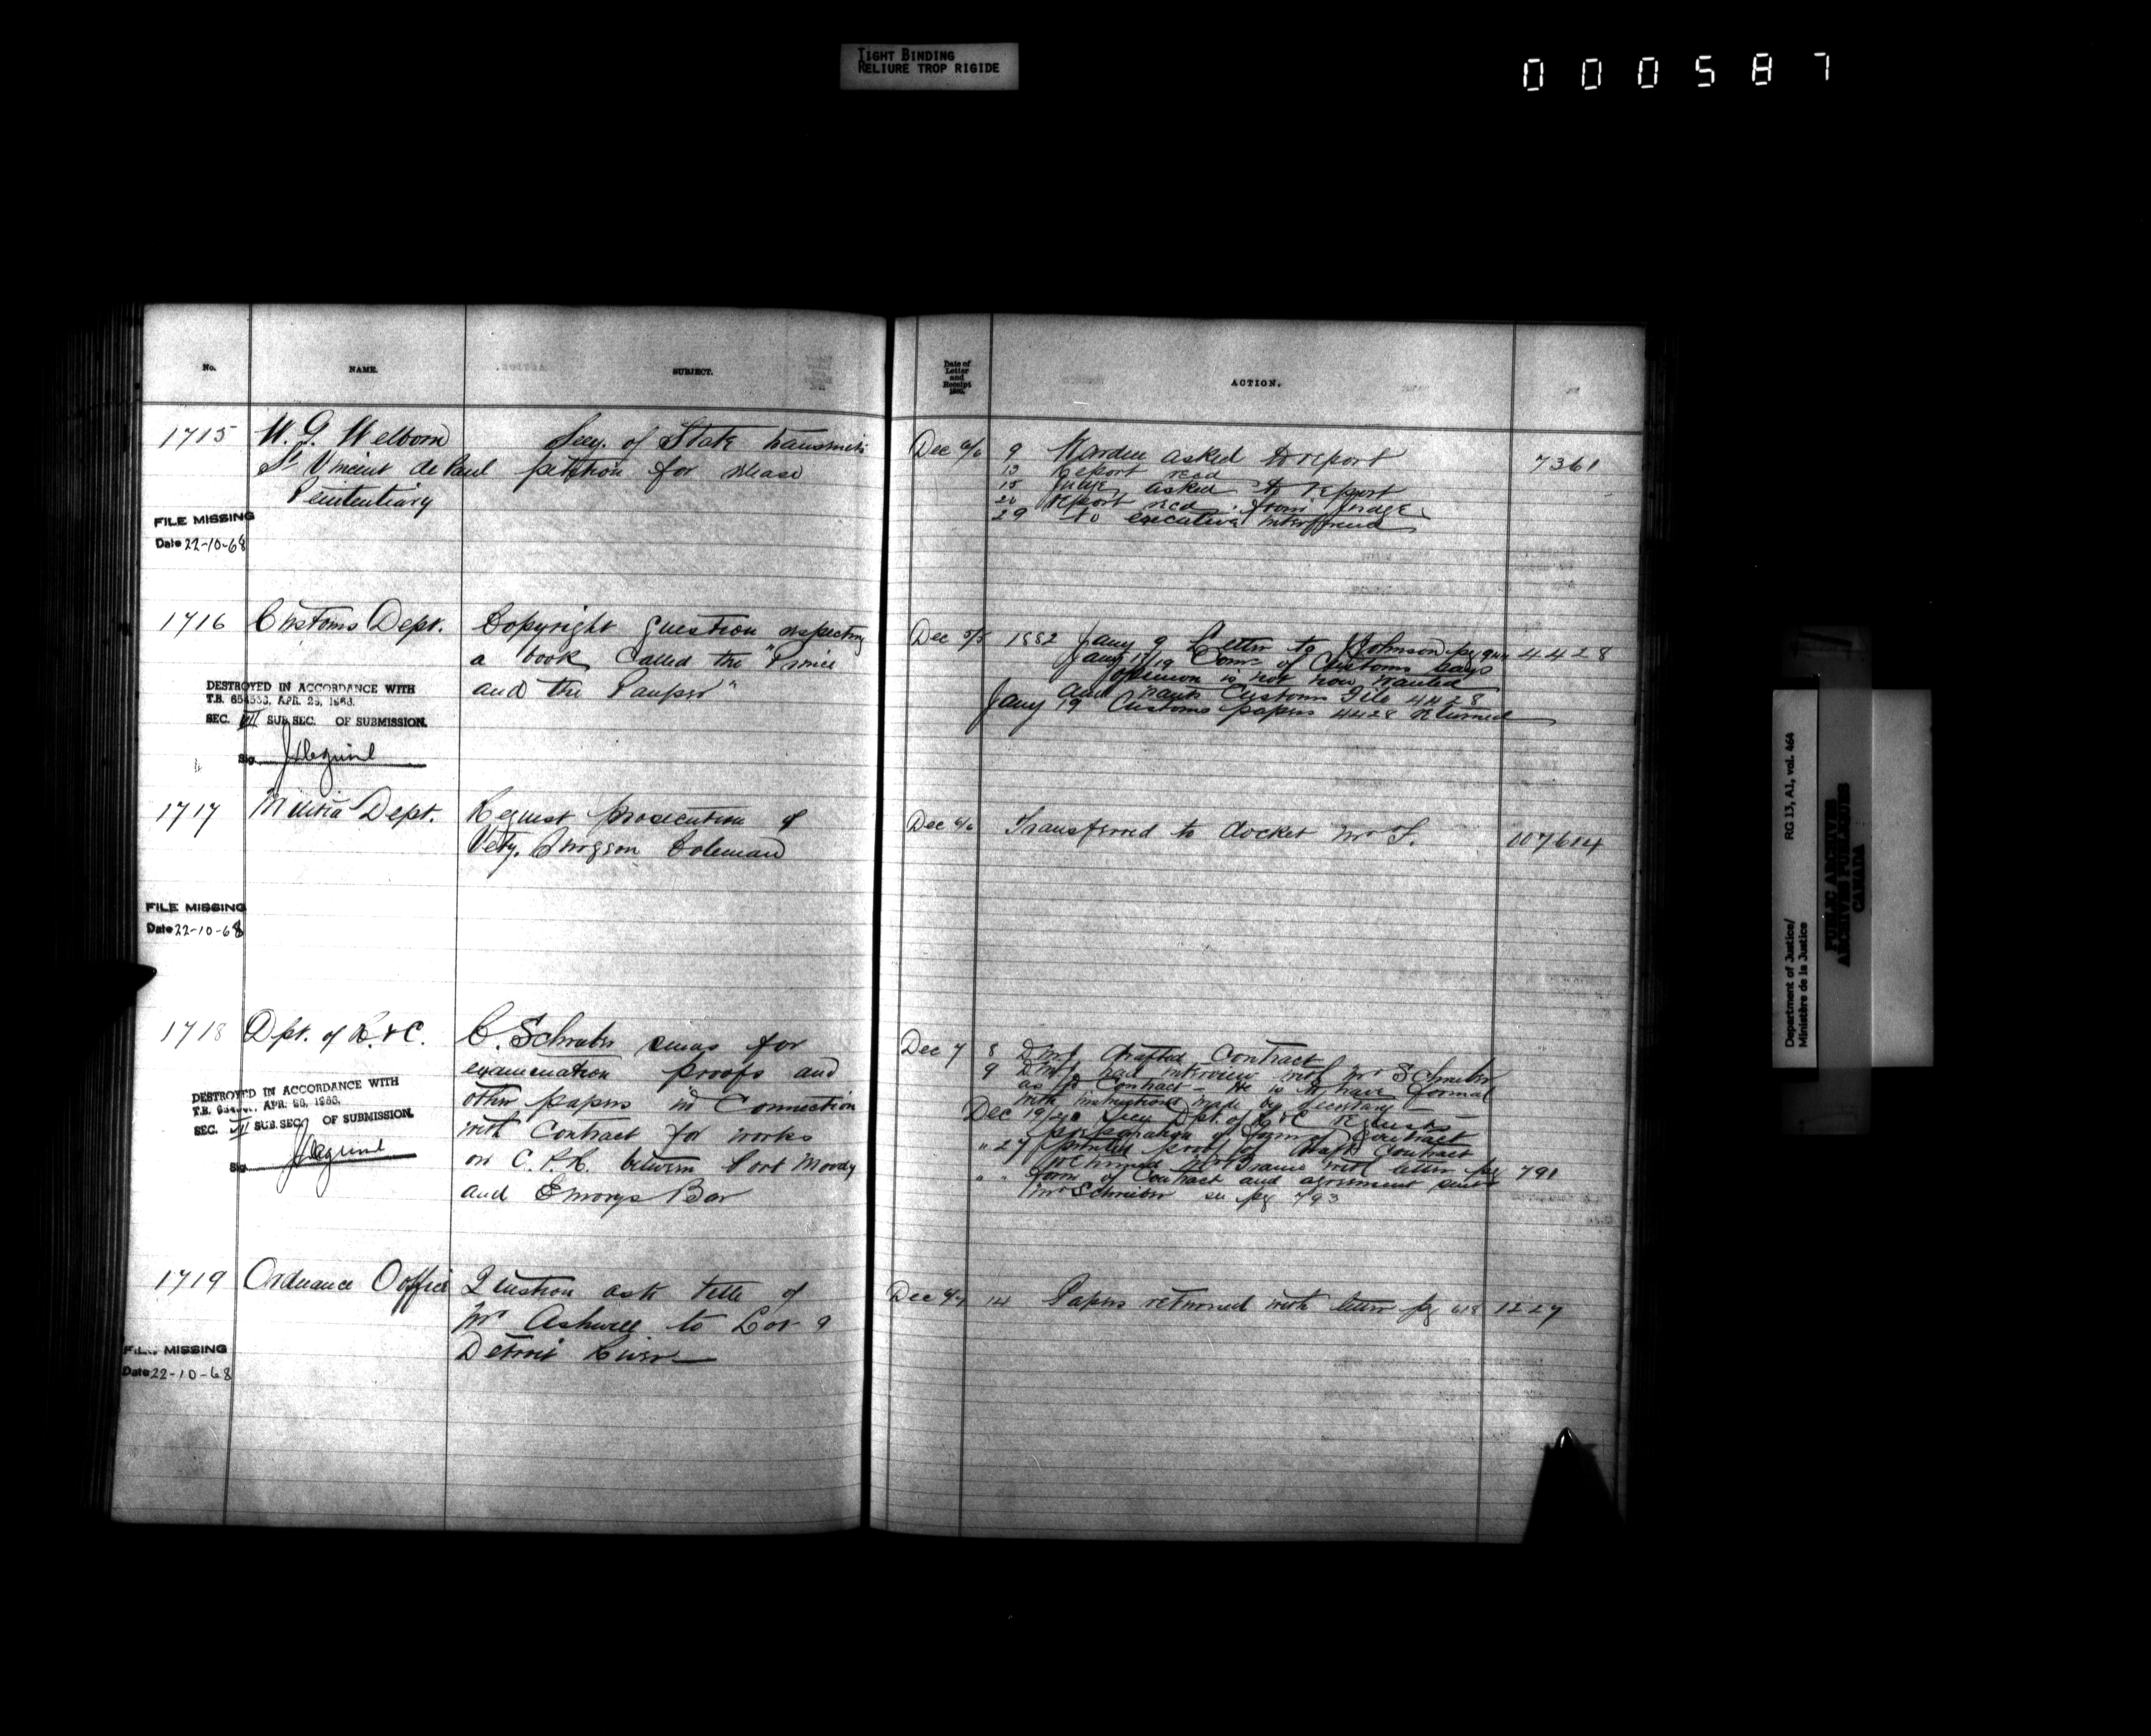 TIGHT BINDING
RELIURE TROP RIGIDE
000587
No.
NAME.
SUBJECT.
Date of
Letter
and
Receipt
ACTION.
1715
W. G. Welborn
St Vincent de Paul
Penitentiary
Secy. of State transmits
petition for release
Dec 6/6
9 Warden asked to report
13 Report recd
15 Judge asked to report
20 report recd from judge
29 executive interference
7361
FILE MISSING
Date 22-10-68
1716
Customs Dept.
Copyright question respecting
a book called the "Prince
and the Pauper"
Dec 5/5
1882 Jany 9 Letter to J Johnson pg 944
Jany 17/19 Comr of Customs says
opinion is not now wanted
and wants Customs File 4428
Jany 19 Customs papers 4428 returned
4428
DESTROYED IN ACCORDANCE WITH
T.B. APR. 25,
SEC. VII SUB SEC. OF SUBMISSION.
Sig.
1717
Militia Dept.
Request prosecution of
Vety. Surgeon Coleman
Dec 6/6
Transferred to docket
107614
FILE MISSING
Date 22-10-68
1718
Dpt. of R. & C.
C. Schreiber sends for
examination proofs and
other papers in connection
with Contract for works
on C. P. R. between Port Moody
and Emorys Bar
Dec 7
8 D.M.J. drafted Contract
9 D.M.J. had interview with Mr Schreiber
as to Contract - He is to have formal
with instructions made by Secretary
Dec 19/20 Secy Dpt. of R & C Requests
preparation of form of Contract
" 27 printed proof of draft Contract
returned Mr with letter pg 791
" " Form of Contract and agreement sent
Mr Schreiber see pg 793
DESTROYED IN ACCORDANCE WITH
T.B. APR. 25,
SEC. VII SUB. SEC. OF SUBMISSION.
Sig.
1719
Ordnance Office
Question as to title of
Mr Ashwell to Lot 9
Detroit River
Dec 6/7
14 Papers returned with letter pg 618
1227
FILE MISSING
Date 22-10-68
Department of Justice/
Ministère de la Justice
RG 13, A1, vol. 464
PUBLIC ARCHIVES
ARCHIVES PUBLIQUES
CANADA